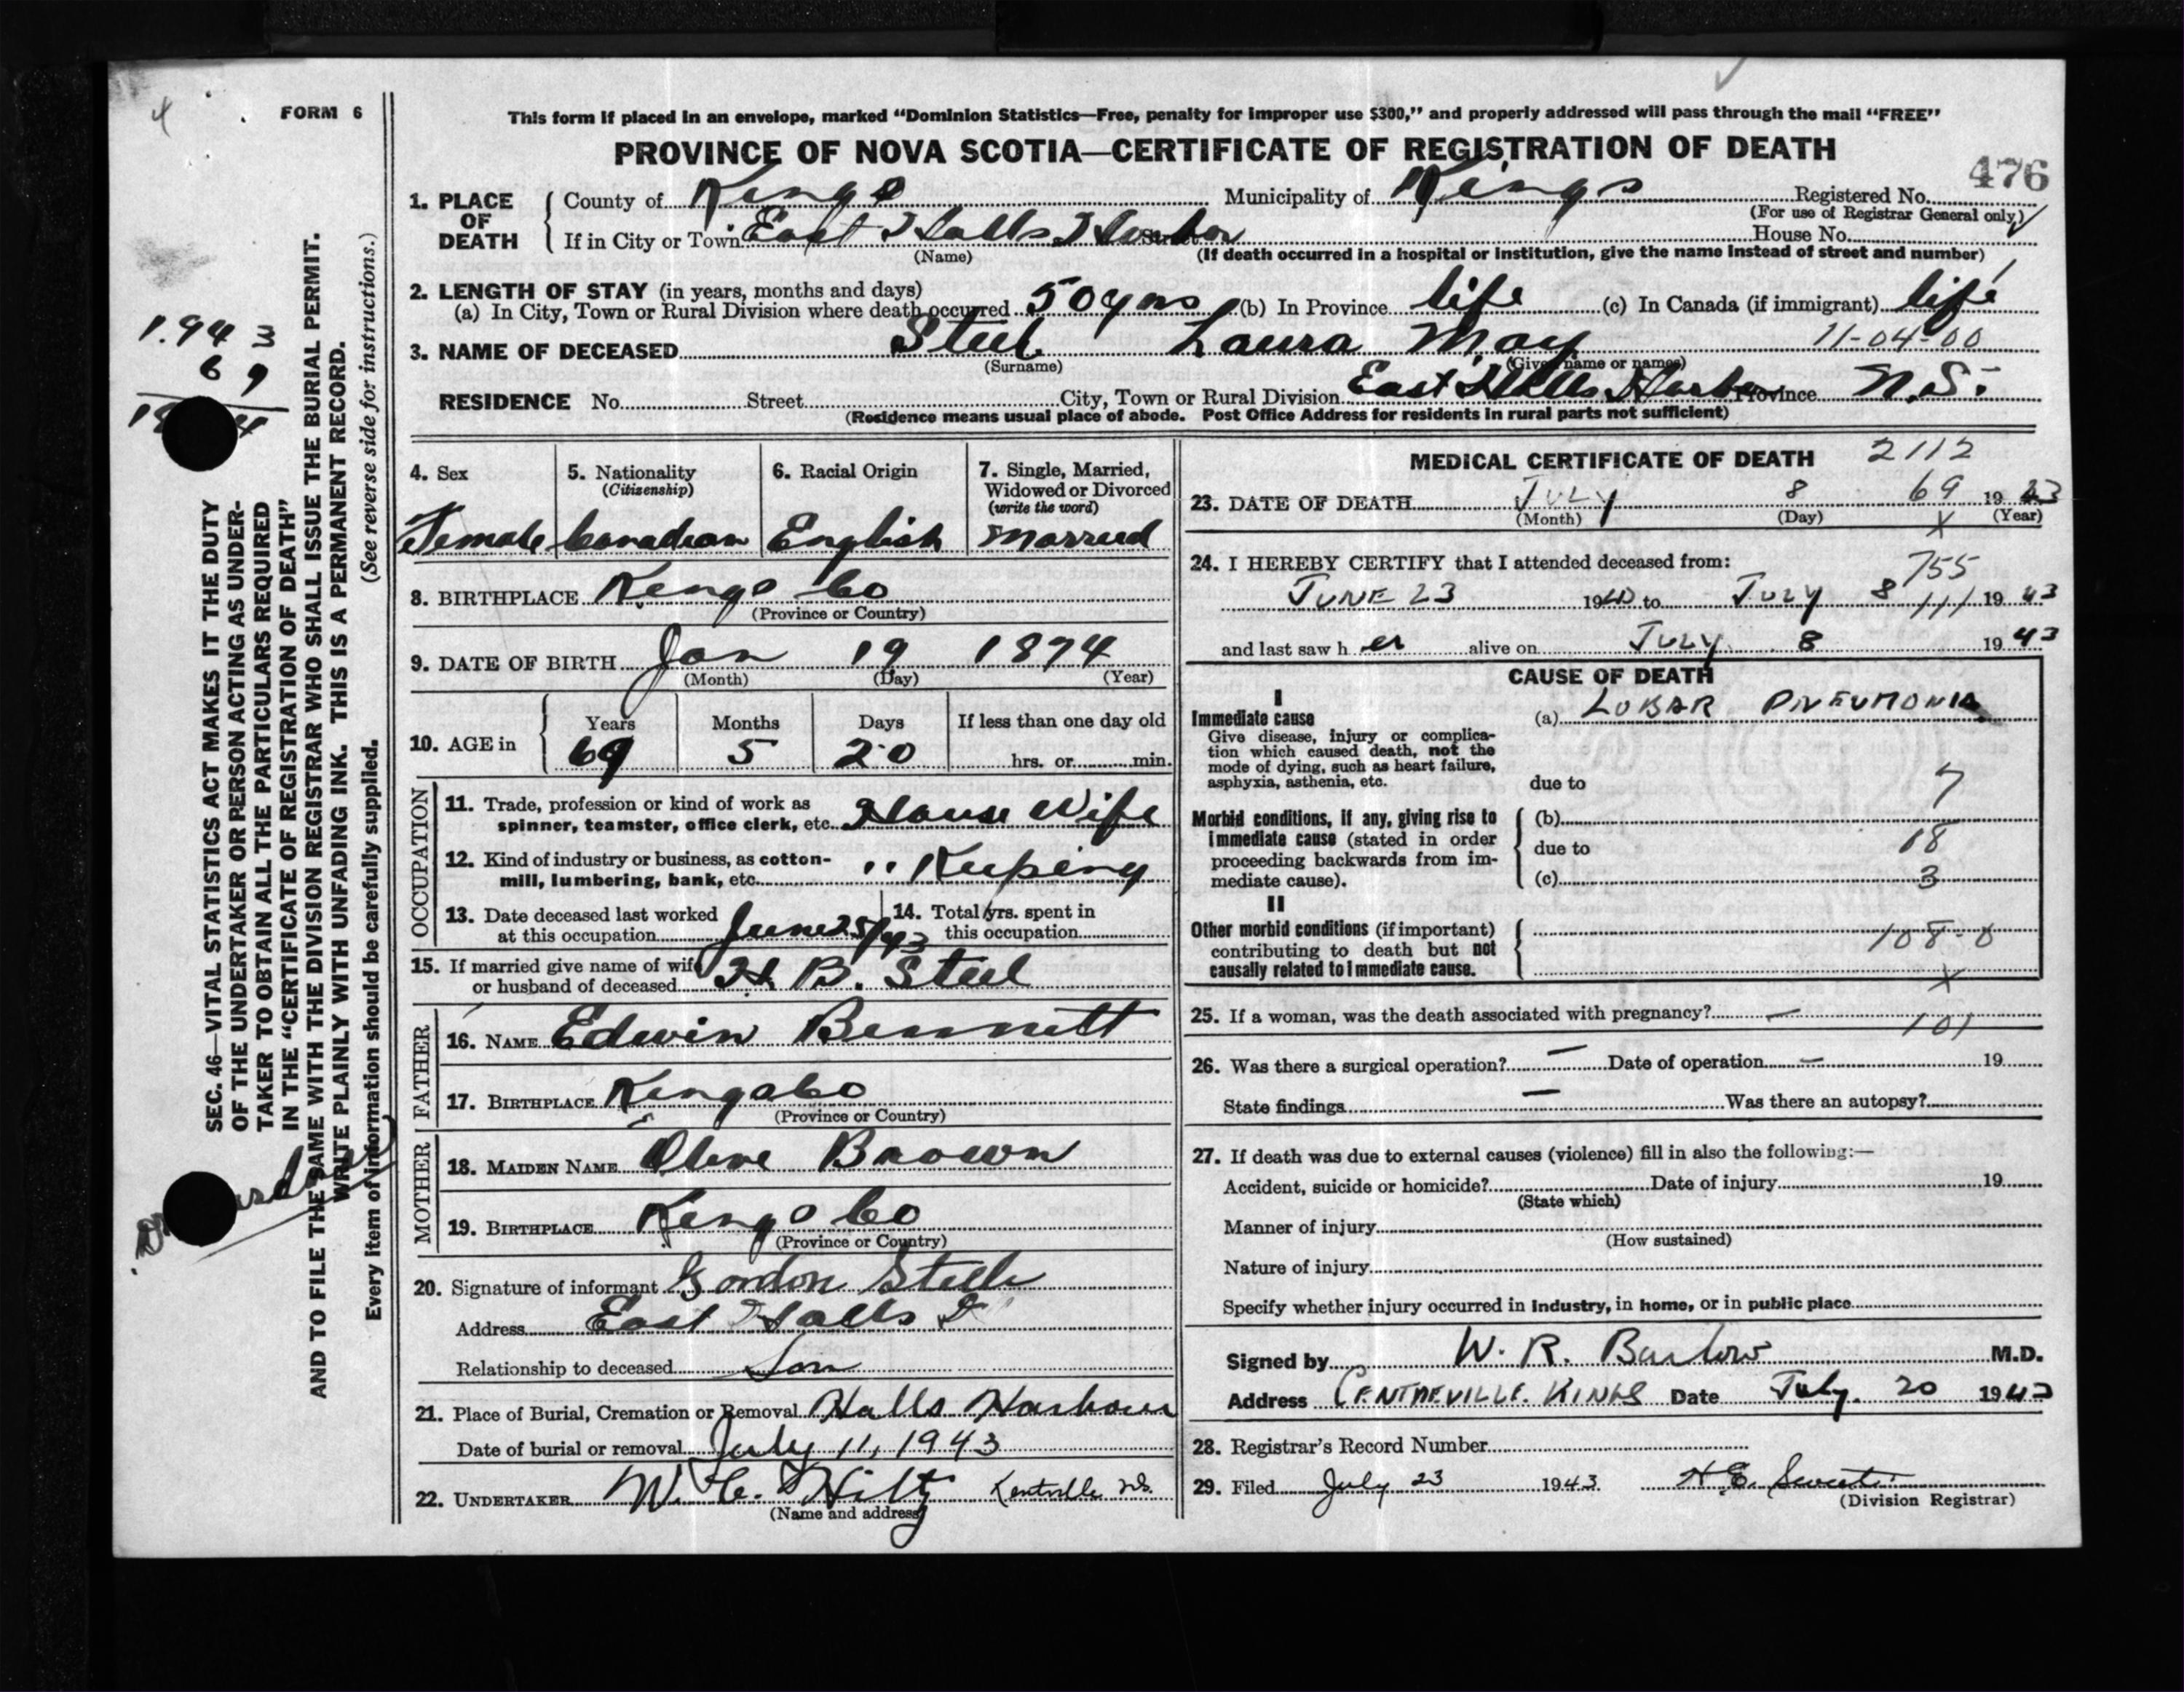 4
FORM 6
This form if placed in an envelope, marked “Dominion Statistics—Free, penalty for improper use $300,” and properly addressed will pass through the mail “FREE”
PROVINCE OF NOVA SCOTIA—CERTIFICATE OF REGISTRATION OF DEATH
476
1. PLACE OF DEATH
County of Kings Municipality of Kings Registered No.
(For use of Registrar General only)
If in City or Town East Halls Harbor Street House No.
(Name) (If death occurred in a hospital or institution, give the name instead of street and number)
2. LENGTH OF STAY (in years, months and days)
(a) In City, Town or Rural Division where death occurred 50 yrs (b) In Province life (c) In Canada (if immigrant) life
3. NAME OF DECEASED Steel Laura May 11-04-00
(Surname) (Given name or names)
RESIDENCE No. Street City, Town or Rural Division East Halls Harbor Province N.S.
(Residence means usual place of abode. Post Office Address for residents in rural parts not sufficient)
1943
69
18 4
SEC. 46—VITAL STATISTICS ACT MAKES IT THE DUTY
OF THE UNDERTAKER OR PERSON ACTING AS UNDER-
TAKER TO OBTAIN ALL THE PARTICULARS REQUIRED
IN THE “CERTIFICATE OF REGISTRATION OF DEATH”
AND TO FILE THE SAME WITH THE DIVISION REGISTRAR WHO SHALL ISSUE THE BURIAL PERMIT.
WRITE PLAINLY WITH UNFADING INK. THIS IS A PERMANENT RECORD.
Every item of information should be carefully supplied. (See reverse side for instructions.)
4. Sex
Female
5. Nationality
(Citizenship)
Canadian
6. Racial Origin
English
7. Single, Married,
Widowed or Divorced
(write the word)
Married
8. BIRTHPLACE Kings Co
(Province or Country)
9. DATE OF BIRTH Jan 19 1874
(Month) (Day) (Year)
10. AGE in
Years Months Days If less than one day old
69 5 20 hrs. or min.
OCCUPATION
11. Trade, profession or kind of work as
spinner, teamster, office clerk, etc. House Wife
12. Kind of industry or business, as cotton-
mill, lumbering, bank, etc. " Keeping
13. Date deceased last worked
at this occupation June 25/43
14. Total yrs. spent in
this occupation
15. If married give name of wife
or husband of deceased H. B. Steel
FATHER
16. NAME Edwin Bennett
17. BIRTHPLACE Kings Co
(Province or Country)
MOTHER
18. MAIDEN NAME Olive Brown
19. BIRTHPLACE Kings Co
(Province or Country)
20. Signature of informant Gordon Steele
Address East Halls
Relationship to deceased Son
21. Place of Burial, Cremation or Removal Halls Harbour
Date of burial or removal July 11, 1943
22. UNDERTAKER W. C. Hiltz Kentville NS.
(Name and address)
MEDICAL CERTIFICATE OF DEATH 2112
23. DATE OF DEATH July 8 69 1943
(Month) (Day) X (Year)
24. I HEREBY CERTIFY that I attended deceased from:
755
JUNE 23 19 to JULY 8 111 1943
and last saw her alive on JULY 8 1943
CAUSE OF DEATH
I
Immediate cause
Give disease, injury or complica-
tion which caused death, not the
mode of dying, such as heart failure,
asphyxia, asthenia, etc.
(a) LOBAR PNEUMONIA
due to 7
Morbid conditions, if any, giving rise to
immediate cause (stated in order
proceeding backwards from im-
mediate cause).
(b)
due to 18
(c) 3
II
Other morbid conditions (if important)
contributing to death but not
causally related to immediate cause.
108-0
X
25. If a woman, was the death associated with pregnancy? —
101
26. Was there a surgical operation? — Date of operation — 19
State findings — Was there an autopsy?
27. If death was due to external causes (violence) fill in also the following:—
Accident, suicide or homicide? Date of injury 19
(State which)
Manner of injury
(How sustained)
Nature of injury
Specify whether injury occurred in industry, in home, or in public place
Signed by W. R. Barlow M.D.
Address CENTREVILLE. KINGS Date July. 20 1943
28. Registrar's Record Number
29. Filed July 23 1943 H E
(Division Registrar)